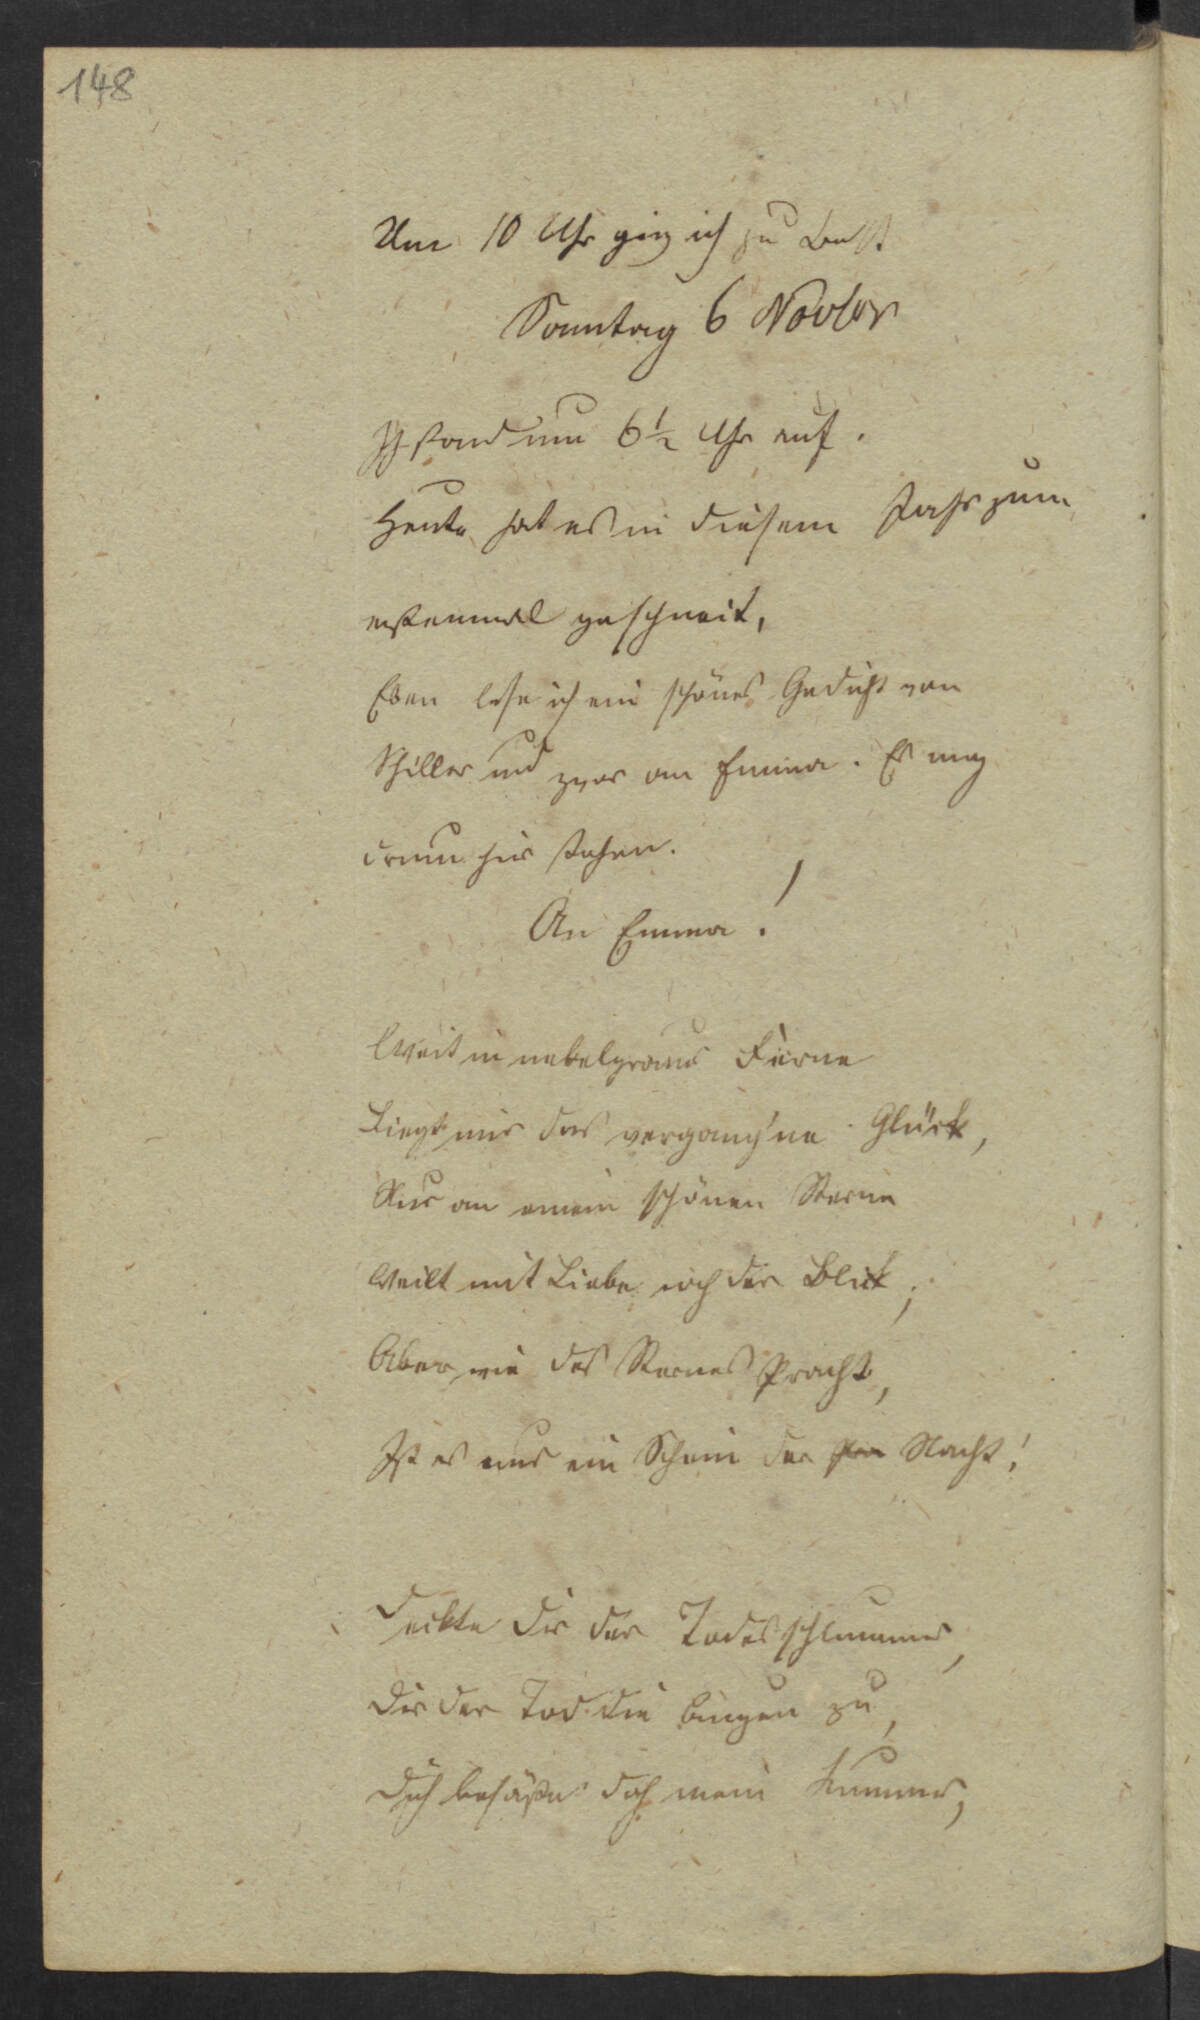 148
Um 10 Uhr ging ich zu Bett
Sonntag 6 Novbr
Ich stand um 6½ Uhr auf.
Heute hat es in diesem Jahr zum
erstenmal geschneit,
Eben lese ich ein schönes Gedicht von
Schiller und zwar an Emma. Es mag
drum hier stehen.
An Emma!
Weit in nebelgrauer Ferne
Liegt mir das vergang'ne Glück,
Nur an einem schönen Sterne
Weilt mit Liebe noch der Blick;
Aber wie des Sternes Pracht,
Ist es nur ein Schein der Nacht!
Deckte dir der Todesschlummer,
Dir der Tod die Augen zu,
Dich besäße doch mein Kummer,